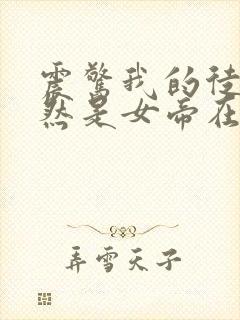 震驚我的徒
然是女帝在
弄雪天子